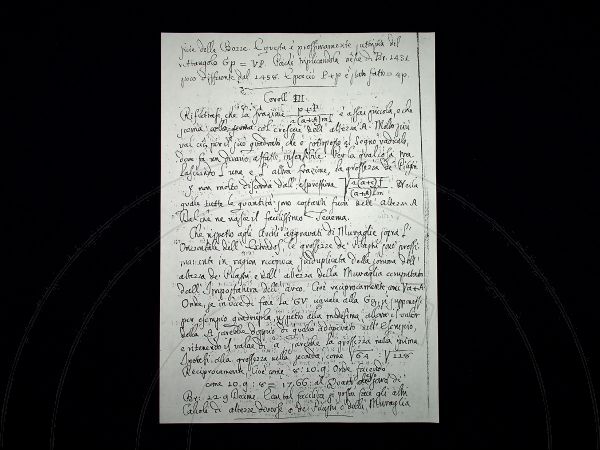 piè della Bozze. E questa è prossimamente suttripla del
rettangolo Gp = VP. Poichè triplicandola nè dà Br. 1431
poco differente dal 1458. E perciò P+p è stato fatto = 4p.
Coroll. III.
Riflettasi che la frazione P+P / a(a+A)ml è assai piccola, e che
scema col crescere dell'altezza A. Molto più
val ciò per il suo quadrato che è sottoposto al segno radicale,
onde fà un divario affatto insensibile. Per la qual cosa tra
lasciando l'una e l'altra frazione, la grossezza de' Piagni
non molto discorda dall'espressione √ a(a+c)f / (a+A)m. Nella
quale tutte le quantità sono costanti fuori dell'altezza A
Dal che ne nasce il facilissimo Teorema.
Che rispetto agli Archi aggravati di Muraglie sopra l'
Orizzontale dell' le grossezze de' sono prossi
mamente in ragion reciproca sudduplicata della somma dell'
altezza de' e dell'altezza della Muraglia computata
dall'Impostatura dell'arco. Cioè reciprocamente come √a+A
Onde, se in vece di fare la GV uguale alla Gg, si supponesse
per esempio quadrupla, rispetto alla medesima, allora il valor
della A sarebbe doppio di quello adoprato nell'Esempio,
e ritenendo il valore di a, sarebbe la grossezza nella prima
Ipotesi alla grossezza nella seconda, come √64 : √118
Reciprocamente. Cioè come 8: 10.9. Onde facendo
come 10.9 : 8 = 17,66: al Quarto sarà di
Br: 12.9 Da me. Con tal facilità si potrà fare gli altri
Calcoli di altezze diverse o de' o delle Muraglia